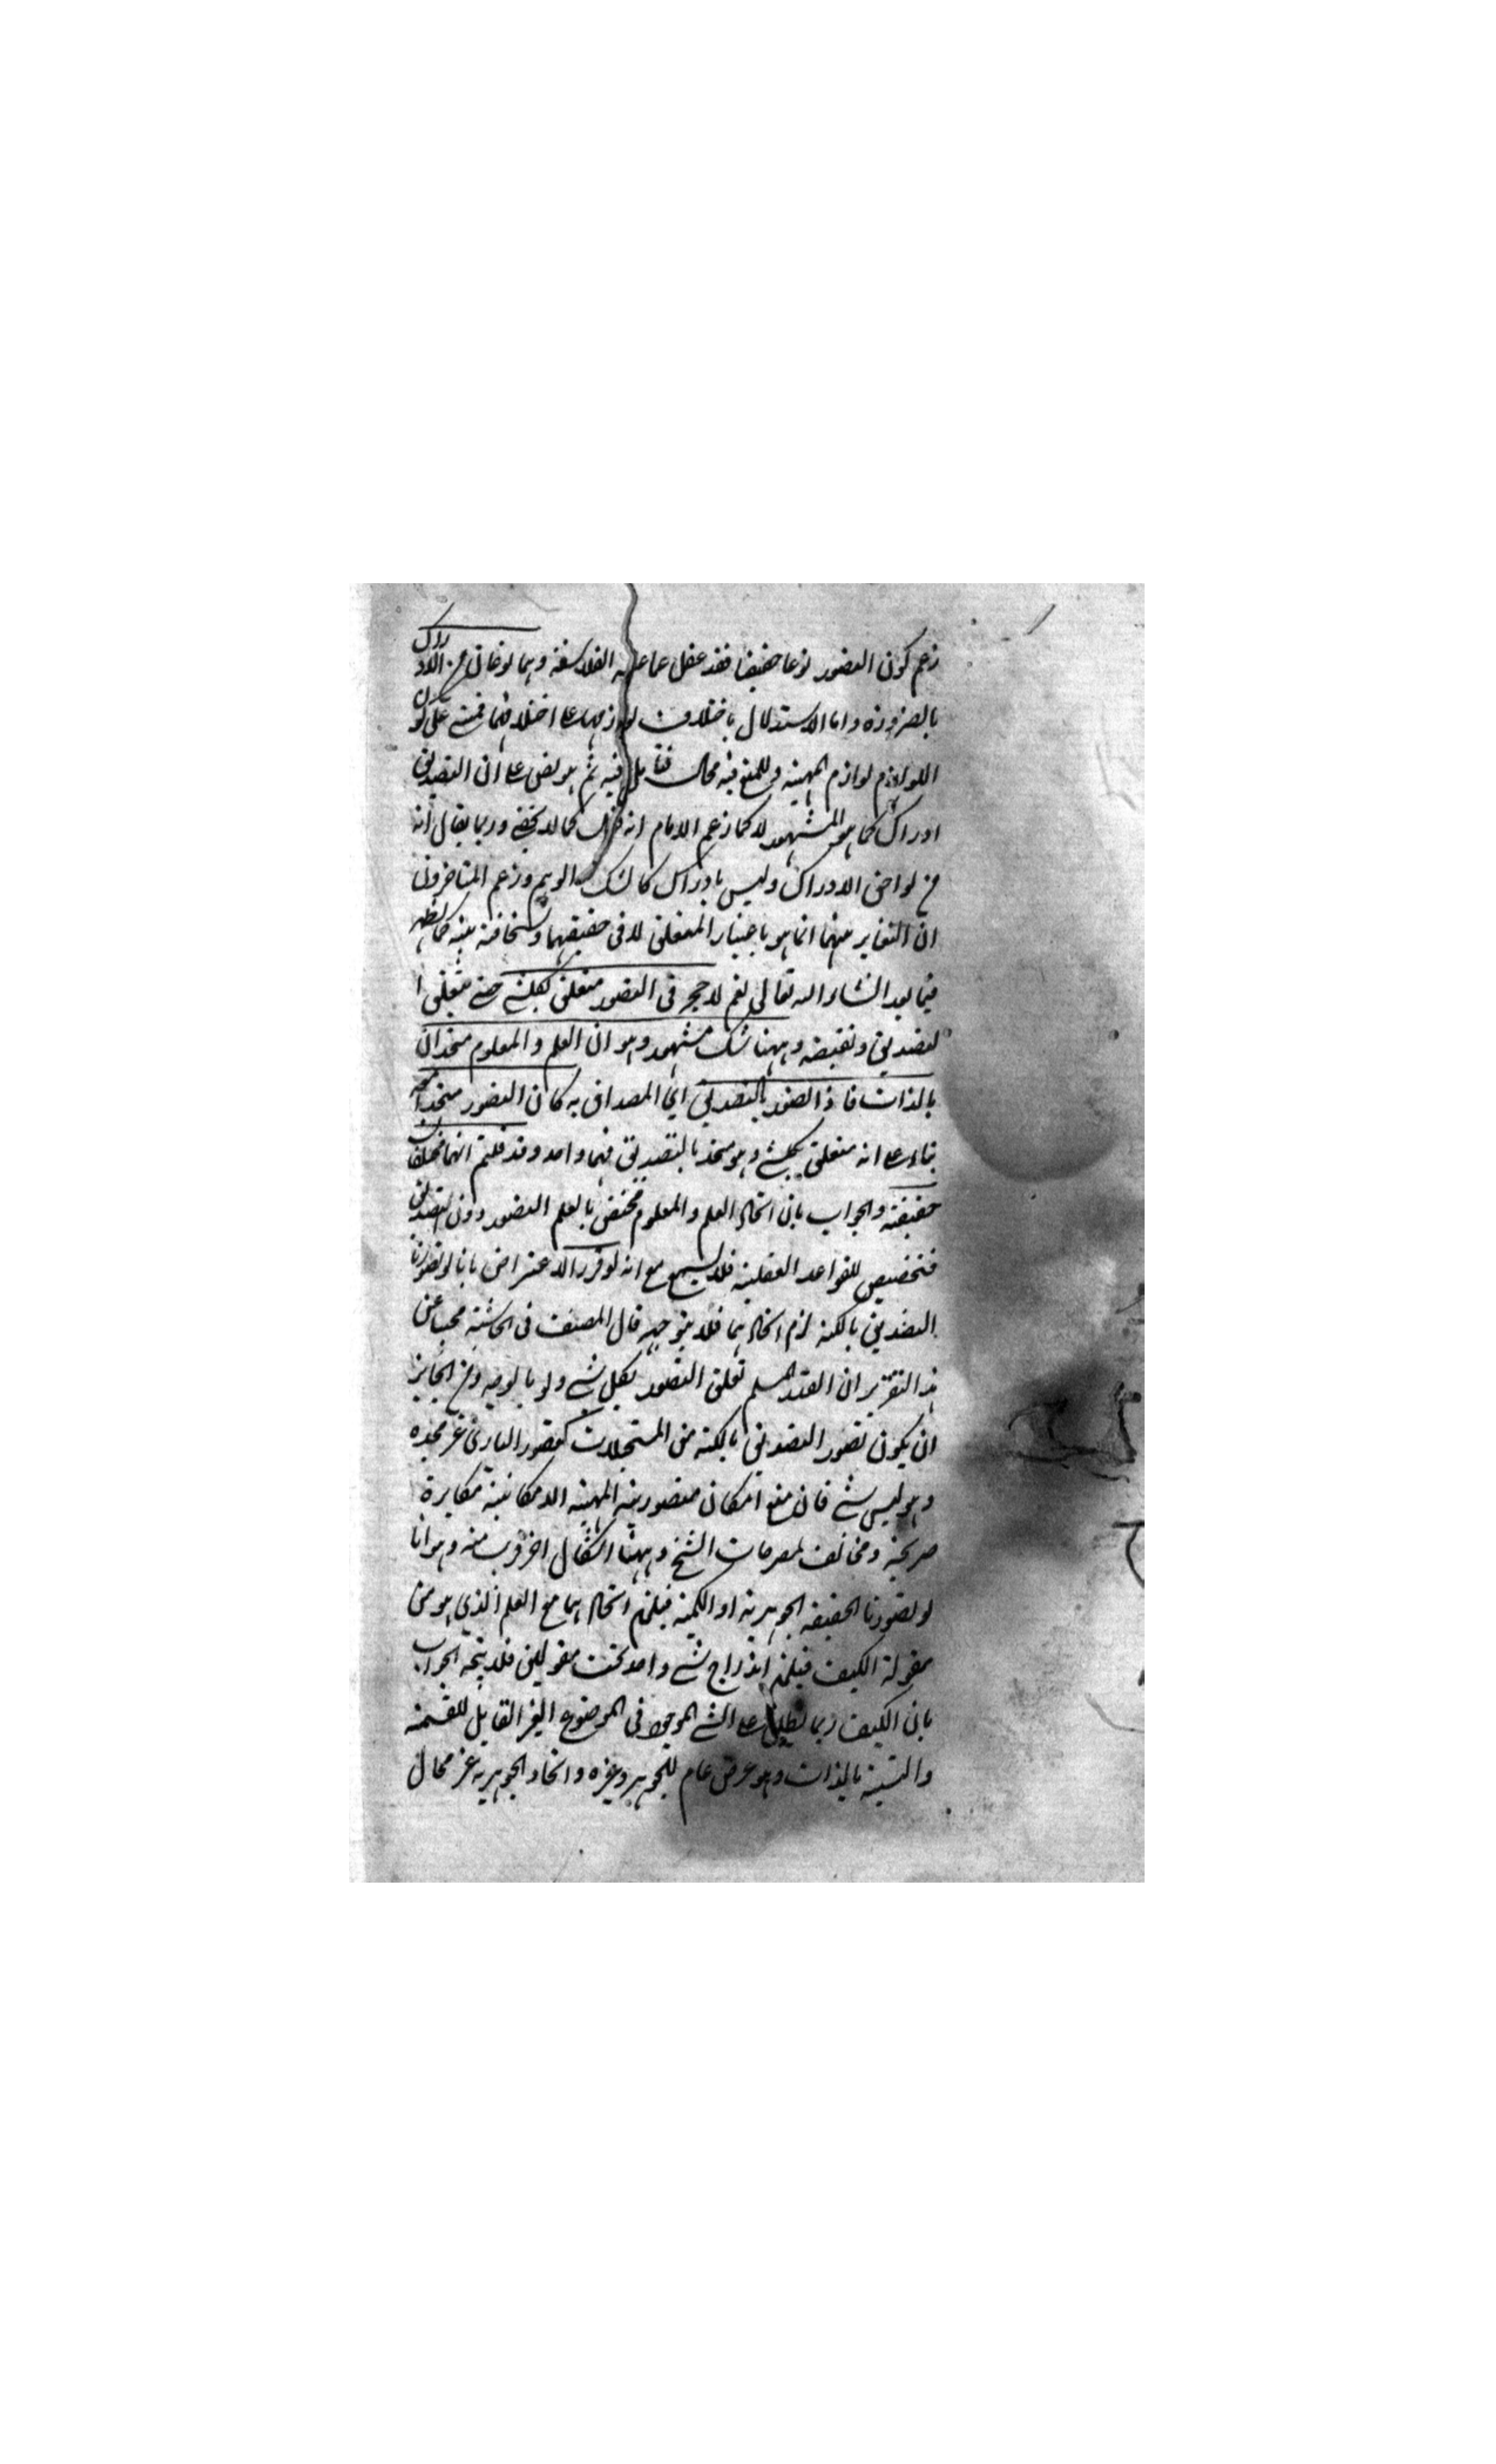 زعم كون التصور نوعا حقيقيا فقد غفل عما عليه الفلاسفة وهما نوعان من الادراك
بالضرورة واما الاستدلال باختلاف لوازمهما على اختلافهما فمبني على كون
اللوازم لوازم المهية وللمنع فيه مجال فتأمل فيه ثم هو نص على ان التصديق
ادراك كما هو المشهور لا كما زعم الامام انه كما لا يخفى وربما يقال انه
من لواحق الادراك وليس بادراك كالشك والوهم وزعم المتاخرون
ان التغاير بينهما انما هو باعتبار المتعلق لا في حقيقتهما وسخافته بينة كما يظهر
فيما بعد انشاء الله تعالى نعم لا حجر في التصور متعلق بكل شيء حتى يتعلق ا
لتصديق ونقيضه وههنا شك مشهور وهو ان العلم والمعلوم متحدان
بالذات فاذا تصور بالتصديق اي المصداق به كان التصور متحدا معه
بناء على انه متعلق بكل شيء وهو متحد بالتصديق فهما واحد وقد قلتم انهما مختلفان
حقيقة والجواب بان اتحاد العلم والمعلوم مختص بالعلم التصور دون التصديق
فتخصيص للقواعد العقلية فلا يسمع مع انه لو قرر الاعتراض بانا لو تصورنا
التصديق بالكنه لزم اتحادهما فلا يتوجه قال المصنف في الحاشية مجيبا عن
هذا التقرير ان القدر المسلم تعلق التصور بكل شيء ولو بالوجه ومن الجايز
ان يكون تصور التصديق بالكنه من المستحيلات كتصور الباري عز مجده
وهو ليس بشيء فان منع امكان متصورية المهية الامكانية مكابرة
صريحة ومخالف لمصرحات الشيخ وههنا اشكال اخر قريب منه وهو انا
لو تصورنا الحقيقة الجوهرية او الكمية فيلزم اتحادهما مع العلم الذي هو من
مقولة الكيف فيلزم اندراج شيء واحد تحت مقولتين فلا يتجه الجواب
بان الكيف ربما يطلق على الشيء الموجود في الموضوع الغير القابل للقسمة
والنسبة بالذات وهو عرض عام للجوهر وغيره واتحاد الجوهرية غير محال